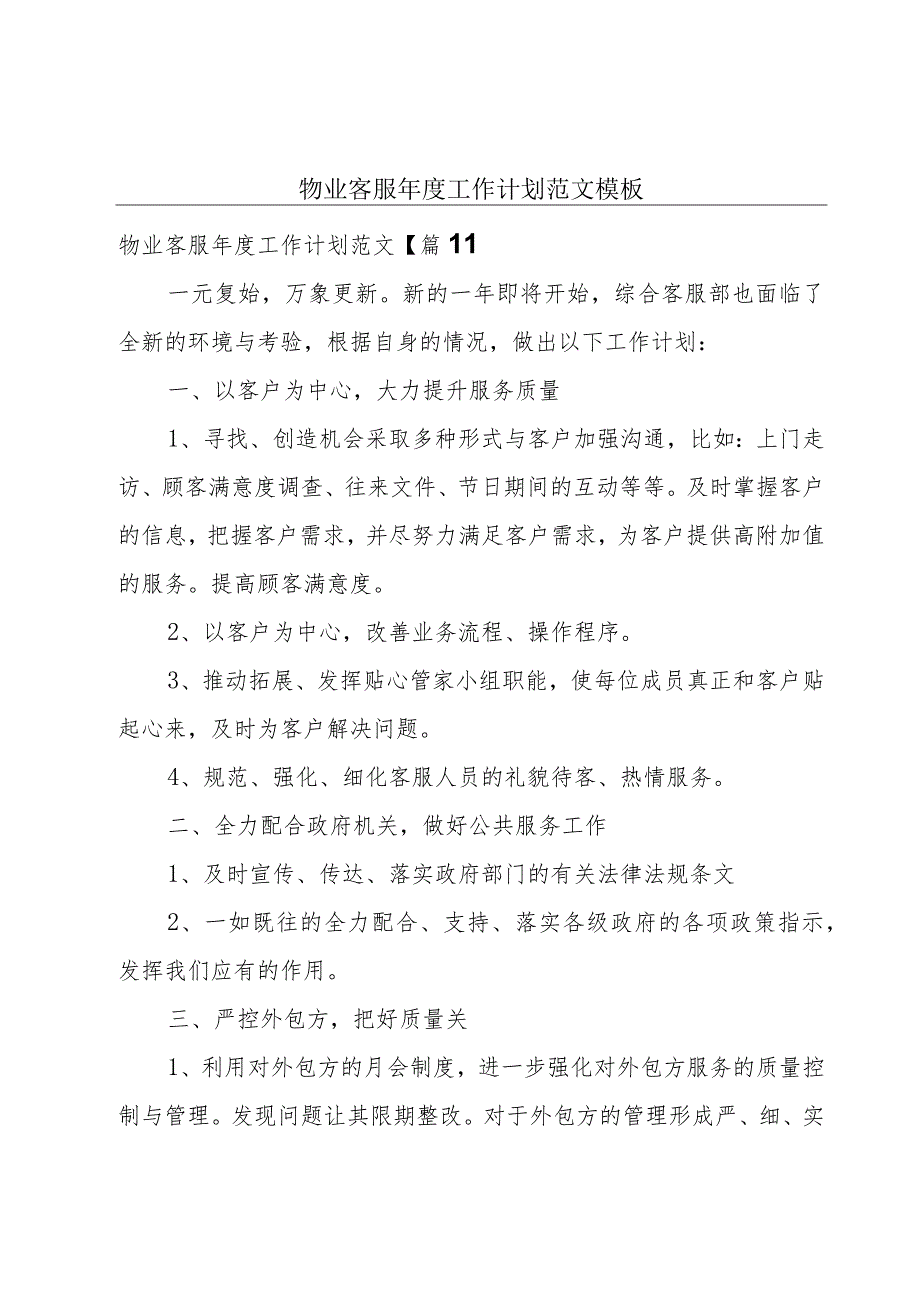 物业客服年度工作计划范文模板
物业客服年度工作计划范文【篇11
一元复始，万象更新。新的一年即将开始，综合客服部也面临了
全新的环境与考验，根据自身的情况，做出以下工作计划：
一、以客户为中心，大力提升服务质量
1、寻找、创造机会采取多种形式与客户加强沟通，比如：上门走
访、顾客满意度调查、往来文件、节日期间的互动等等。及时掌握客户
的信息，把握客户需求，并尽努力满足客户需求，为客户提供高附加值
的服务。提高顾客满意度。
2、以客户为中心，改善业务流程、操作程序。
3、推动拓展、发挥贴心管家小组职能，使每位成员真正和客户贴
起心来，及时为客户解决问题。
4、规范、强化、细化客服人员的礼貌待客、热情服务。
二、全力配合政府机关，做好公共服务工作
1、及时宣传、传达、落实政府部门的有关法律法规条文
2、一如既往的全力配合、支持、落实各级政府的各项政策指示，
发挥我们应有的作用。
三、严控外包方，把好质量关
1、利用对外包方的月会制度，进一步强化对外包方服务的质量控
制与管理。发现问题让其限期整改。对于外包方的管理形成严、细、实